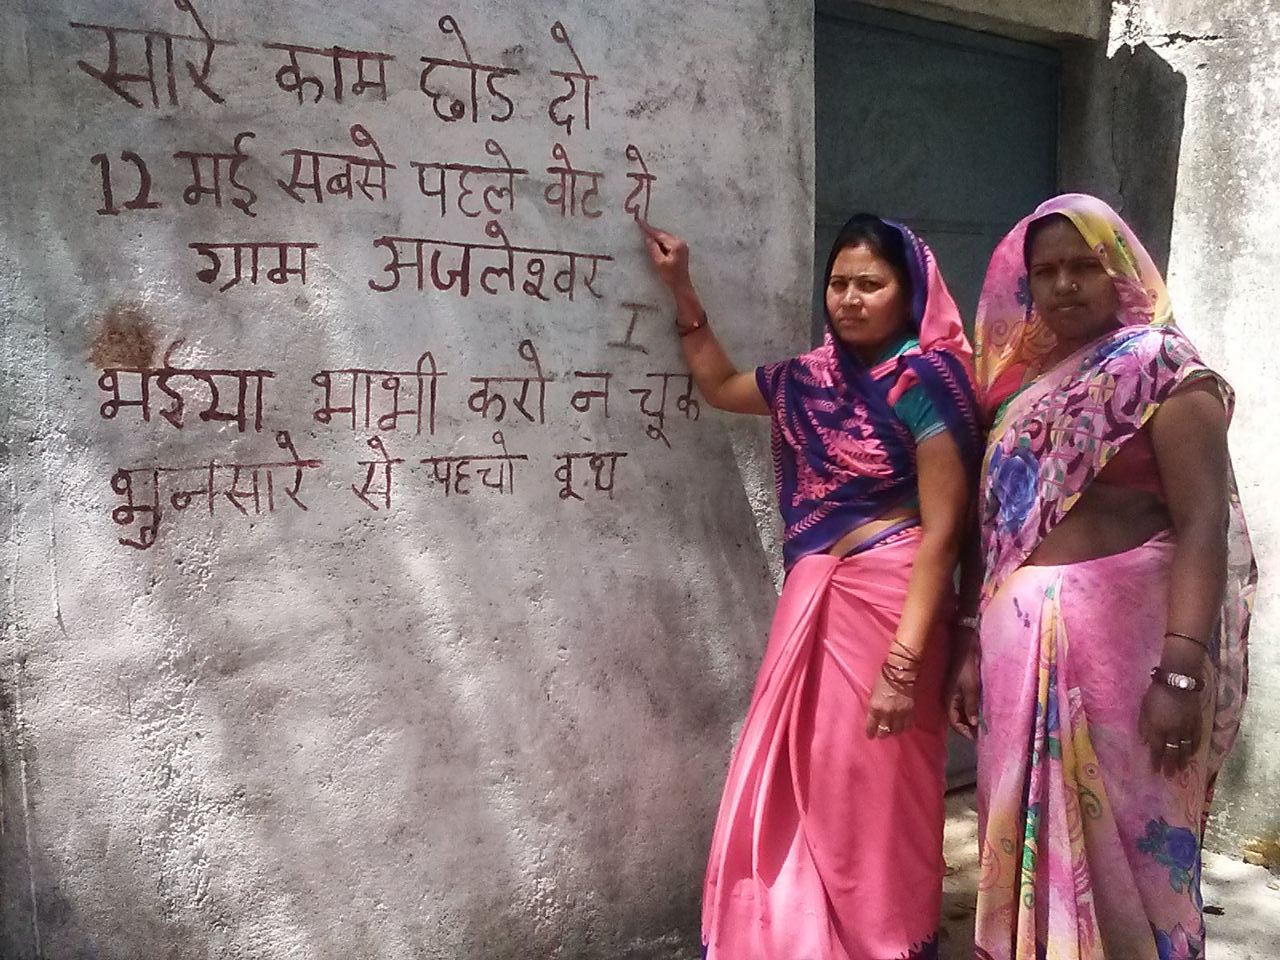 सारे काम छोड दो
12 मई सबसे पहले वोट दो
ग्राम अजलेश्वर
I
भईया भाभी करो न चूक
भुनसारे से पहचो बूथ